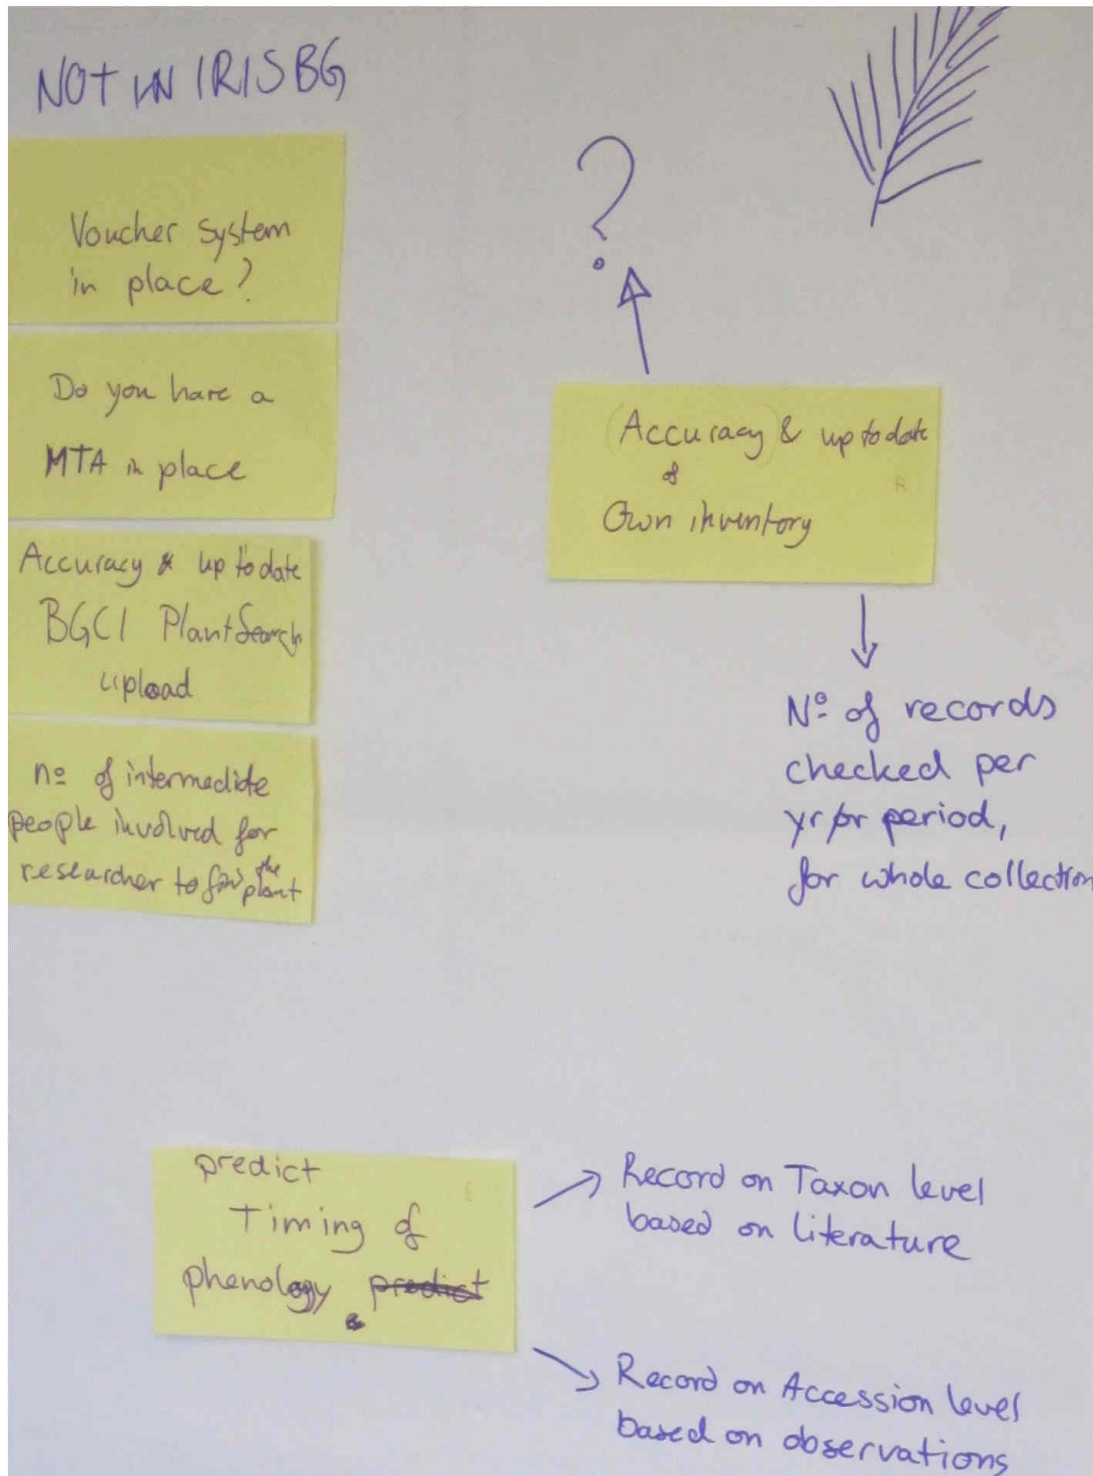 NOT IN IRISBG
Voucher system
in place?
Do you have a
MTA in place
Accuracy & up to date
BGCI PlantSearch
upload
nº of intermediate
people involved for
researcher to find the
plant
?
(Accuracy) & up to date
of
Own inventory
Nº of records
checked per
yr/or period,
for whole collection
predict
Timing of
phenology predict
Record on Taxon level
based on literature
Record on Accession level
based on observations